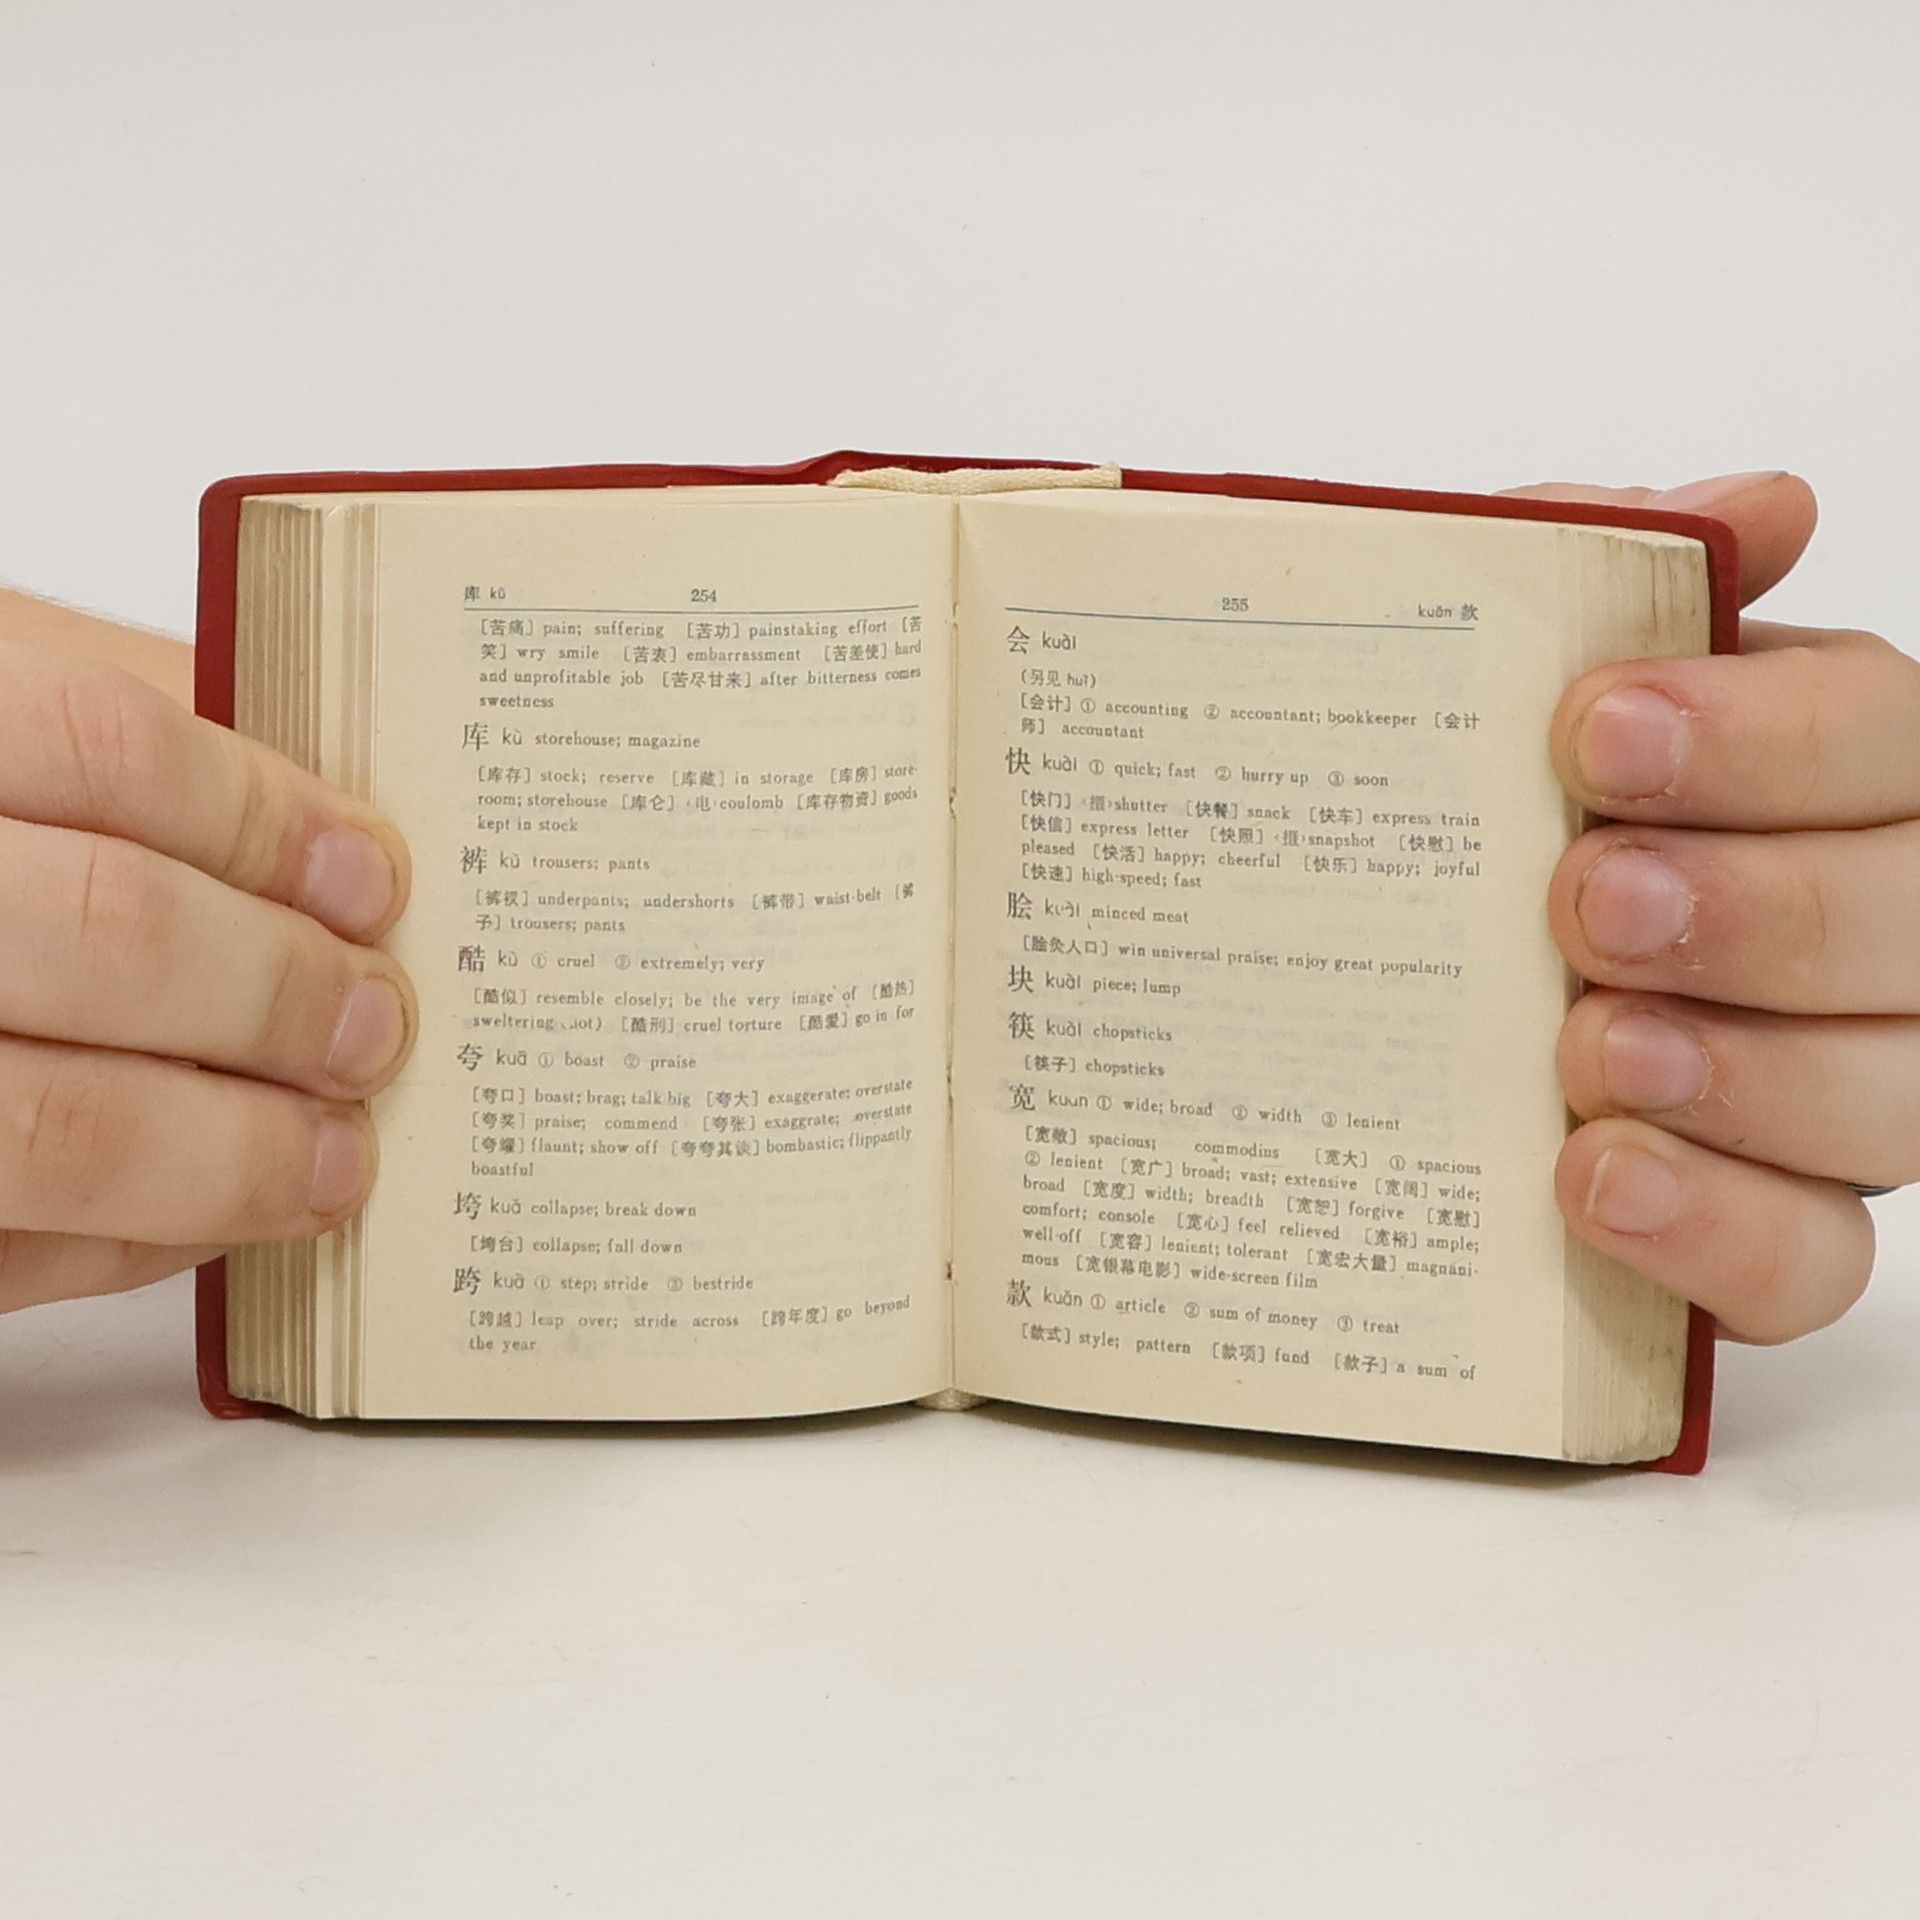 库 kù
254
[苦痛] pain; suffering [苦功] painstaking effort [苦
笑] wry smile [苦衷] embarrassment [苦差使] hard
and unprofitable job [苦尽甘来] after bitterness comes
sweetness
库 kù storehouse; magazine
[库存] stock; reserve [库藏] in storage [库房] store-
room; storehouse [库仑] ‹电› coulomb [库存物资] goods
kept in stock
裤 kù trousers; pants
[裤衩] underpants; undershorts [裤带] waist-belt [裤
子] trousers; pants
酷 kù ① cruel ② extremely; very
[酷似] resemble closely; be the very image of [酷热]
sweltering hot) [酷刑] cruel torture [酷爱] go in for
夸 kuā ① boast ② praise
[夸口] boast; brag; talk big [夸大] exaggerate; overstate
[夸奖] praise; commend [夸张] exaggrate; overstate
[夸耀] flaunt; show off [夸夸其谈] bombastic; flippantly
boastful
垮 kuǎ collapse; break down
[垮台] collapse; fall down
跨 kuà ① step; stride ② bestride
[跨越] leap over; stride across [跨年度] go beyond
the year
255
kuǎn 款
会 kuài
(另见 huì)
[会计] ① accounting ② accountant; bookkeeper [会计
师] accountant
快 kuài ① quick; fast ② hurry up ③ soon
[快门] ‹摄› shutter [快餐] snack [快车] express train
[快信] express letter [快照] ‹摄› snapshot [快慰] be
pleased [快活] happy; cheerful [快乐] happy; joyful
[快速] high-speed; fast
脍 kuài minced meat
[脍炙人口] win universal praise; enjoy great popularity
块 kuài piece; lump
筷 kuài chopsticks
[筷子] chopsticks
宽 kuān ① wide; broad ② width ③ lenient
[宽敞] spacious; commodius [宽大] ① spacious
② lenient [宽广] broad; vast; extensive [宽阔] wide;
broad [宽度] width; breadth [宽恕] forgive [宽慰]
comfort; console [宽心] feel relieved [宽裕] ample;
well-off [宽容] lenient; tolerant [宽宏大量] magnani-
mous [宽银幕电影] wide-screen film
款 kuǎn ① article ② sum of money ③ treat
[款式] style; pattern [款项] fund [款子] a sum of